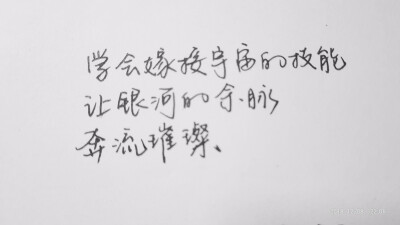 学会嫁接宇宙的技能
让银河的余脉
奔流璀璨、